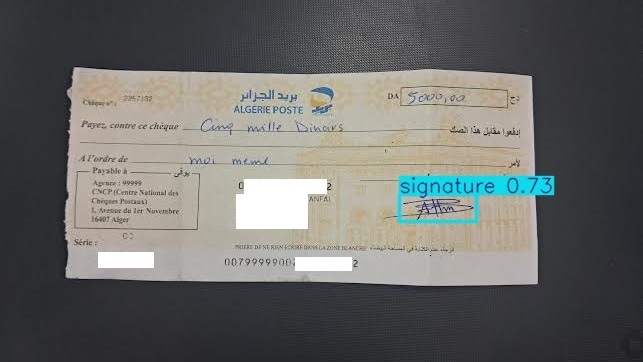 بريد الجزائر
ALGERIE POSTE
Chèque n° :
DA 5000,00 دج
Payez, contre ce chèque Cinq mille Dinars إدفعوا مقابل هذا الصك
A l'ordre de moi meme لأمر
Payable à يوفى
Agence : 99999
CNCP (Centre National des
Chèques Postaux)
1, Avenue du 1er Novembre
16407 Alger
signature 0.73
Série :
PRIERE DE NE RIEN ECRIRE DANS LA ZONE BLANCHE الرجاء عدم الكتابة في المساحة البيضاء
0079999900 2